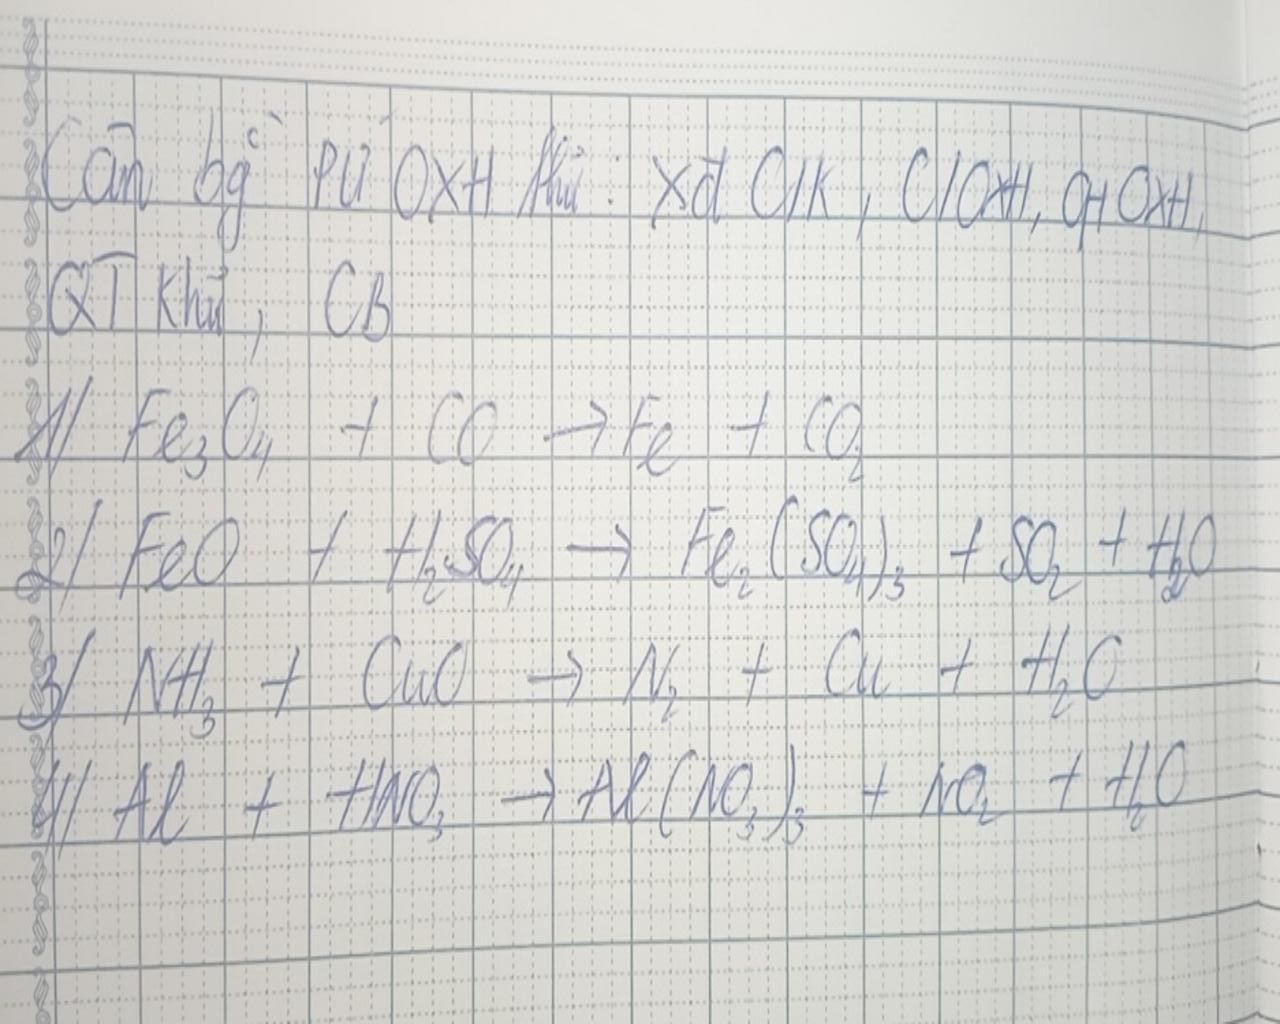 Cân bg PƯ OXH khử: xđ C/K, C/OXH, QT OXH,
QT khử, CB
1/ Fe₃O₄ + CO → Fe + CO₂
2/ FeO + H₂SO₄ → Fe₂(SO₄)₃ + SO₂ + H₂O
3/ NH₃ + CuO → N₂ + Cu + H₂O
4/ Al + HNO₃ → Al(NO₃)₃ + NO₂ + H₂O